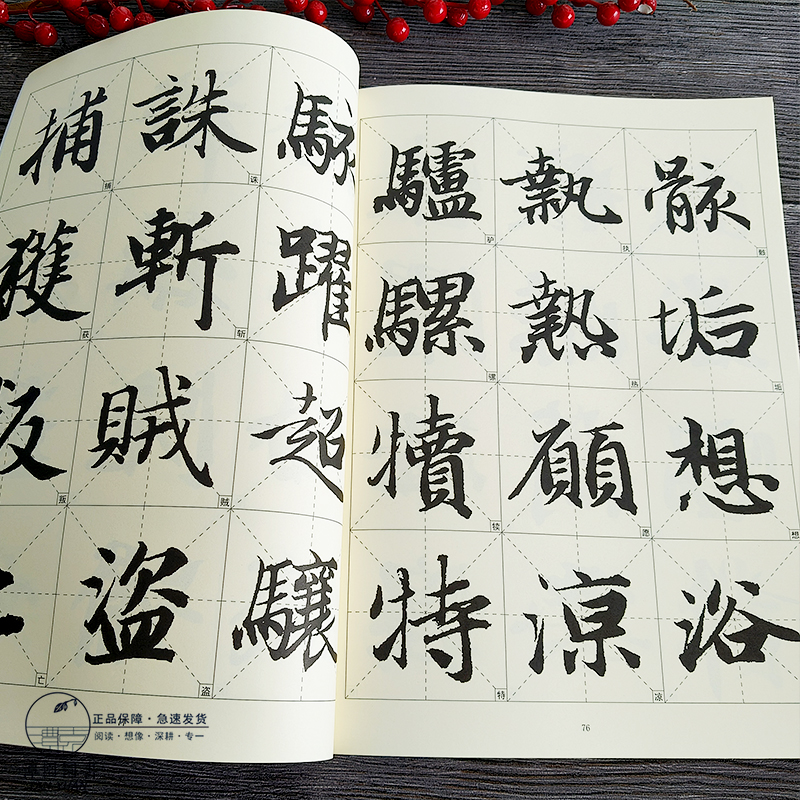 骸垢想浴
骸 垢 想
執熱願涼
执 热 愿 凉
驢騾犢特
驴 骡 犊 特
76
駭躍超驤
誅斬賊盜
诛 斩 贼 盗
捕獲叛亡
捕 获 叛 亡
正品保障·急速发货
阅读·想像·深耕·专一